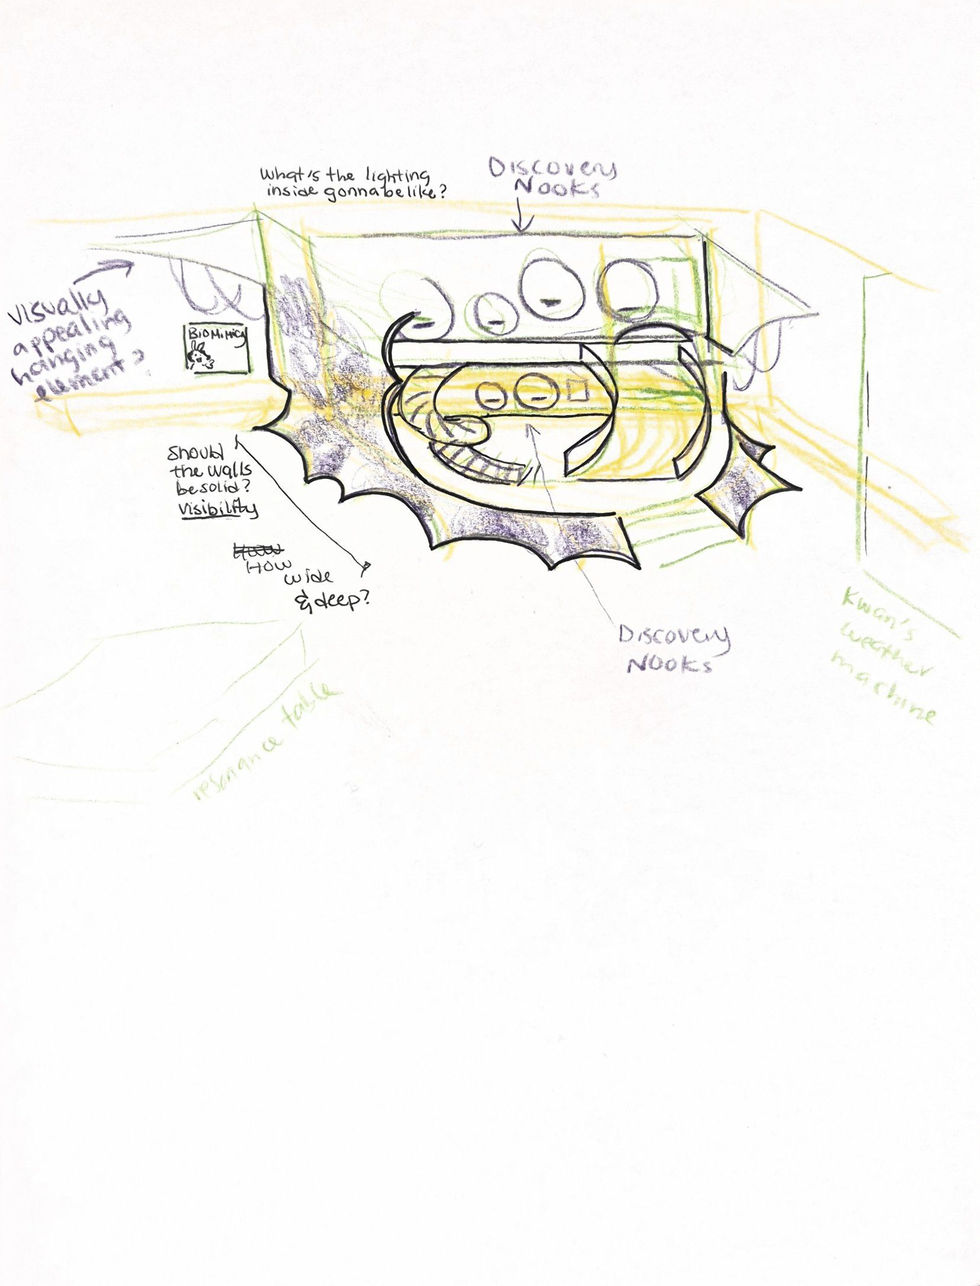 What's the lighting
inside gonna be like?
Discovery
Nooks
Visually
appealing
hanging
element?
BIOMIMICRY
Should
the walls
be solid?
visibility
How
wide
& deep?
Discovery
Nooks
Kwan's
weather
machine
resonance table